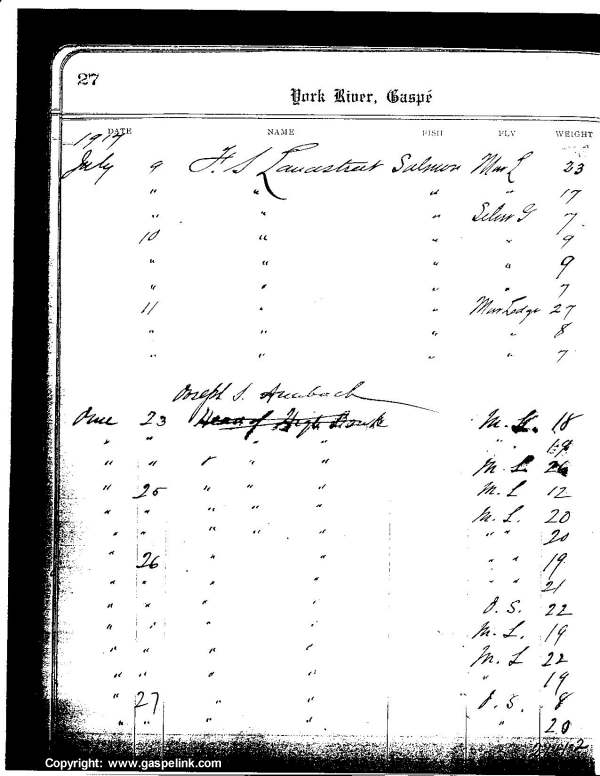 27
York River, Gaspé
DATE NAME FISH FLY WEIGHT
1917
July 9 H. S. Salmon Mar L 23
" " " " 17
" " " Silver G 7
10 " " " 9
" " " " 9
" " " " 7
11 " " Mar Lodge 27
" " " " 8
" " " " 7
Joseph S.
June 23 Head of High Bank M. L. 18
" " " " " "
" " " " " M. L. 26
" 25 " " " M. L 12
" " " " " M. L. 20
" " " " " " " 20
" 26 " " " " 19
" " " " " " 21
" " " " J. S. 22
" " " " M. L. 19
" " " " M. L 22
" " " " " 19
" 27 " " J. S. 8
" " " " " 20
Copyright: www.gaspelink.com